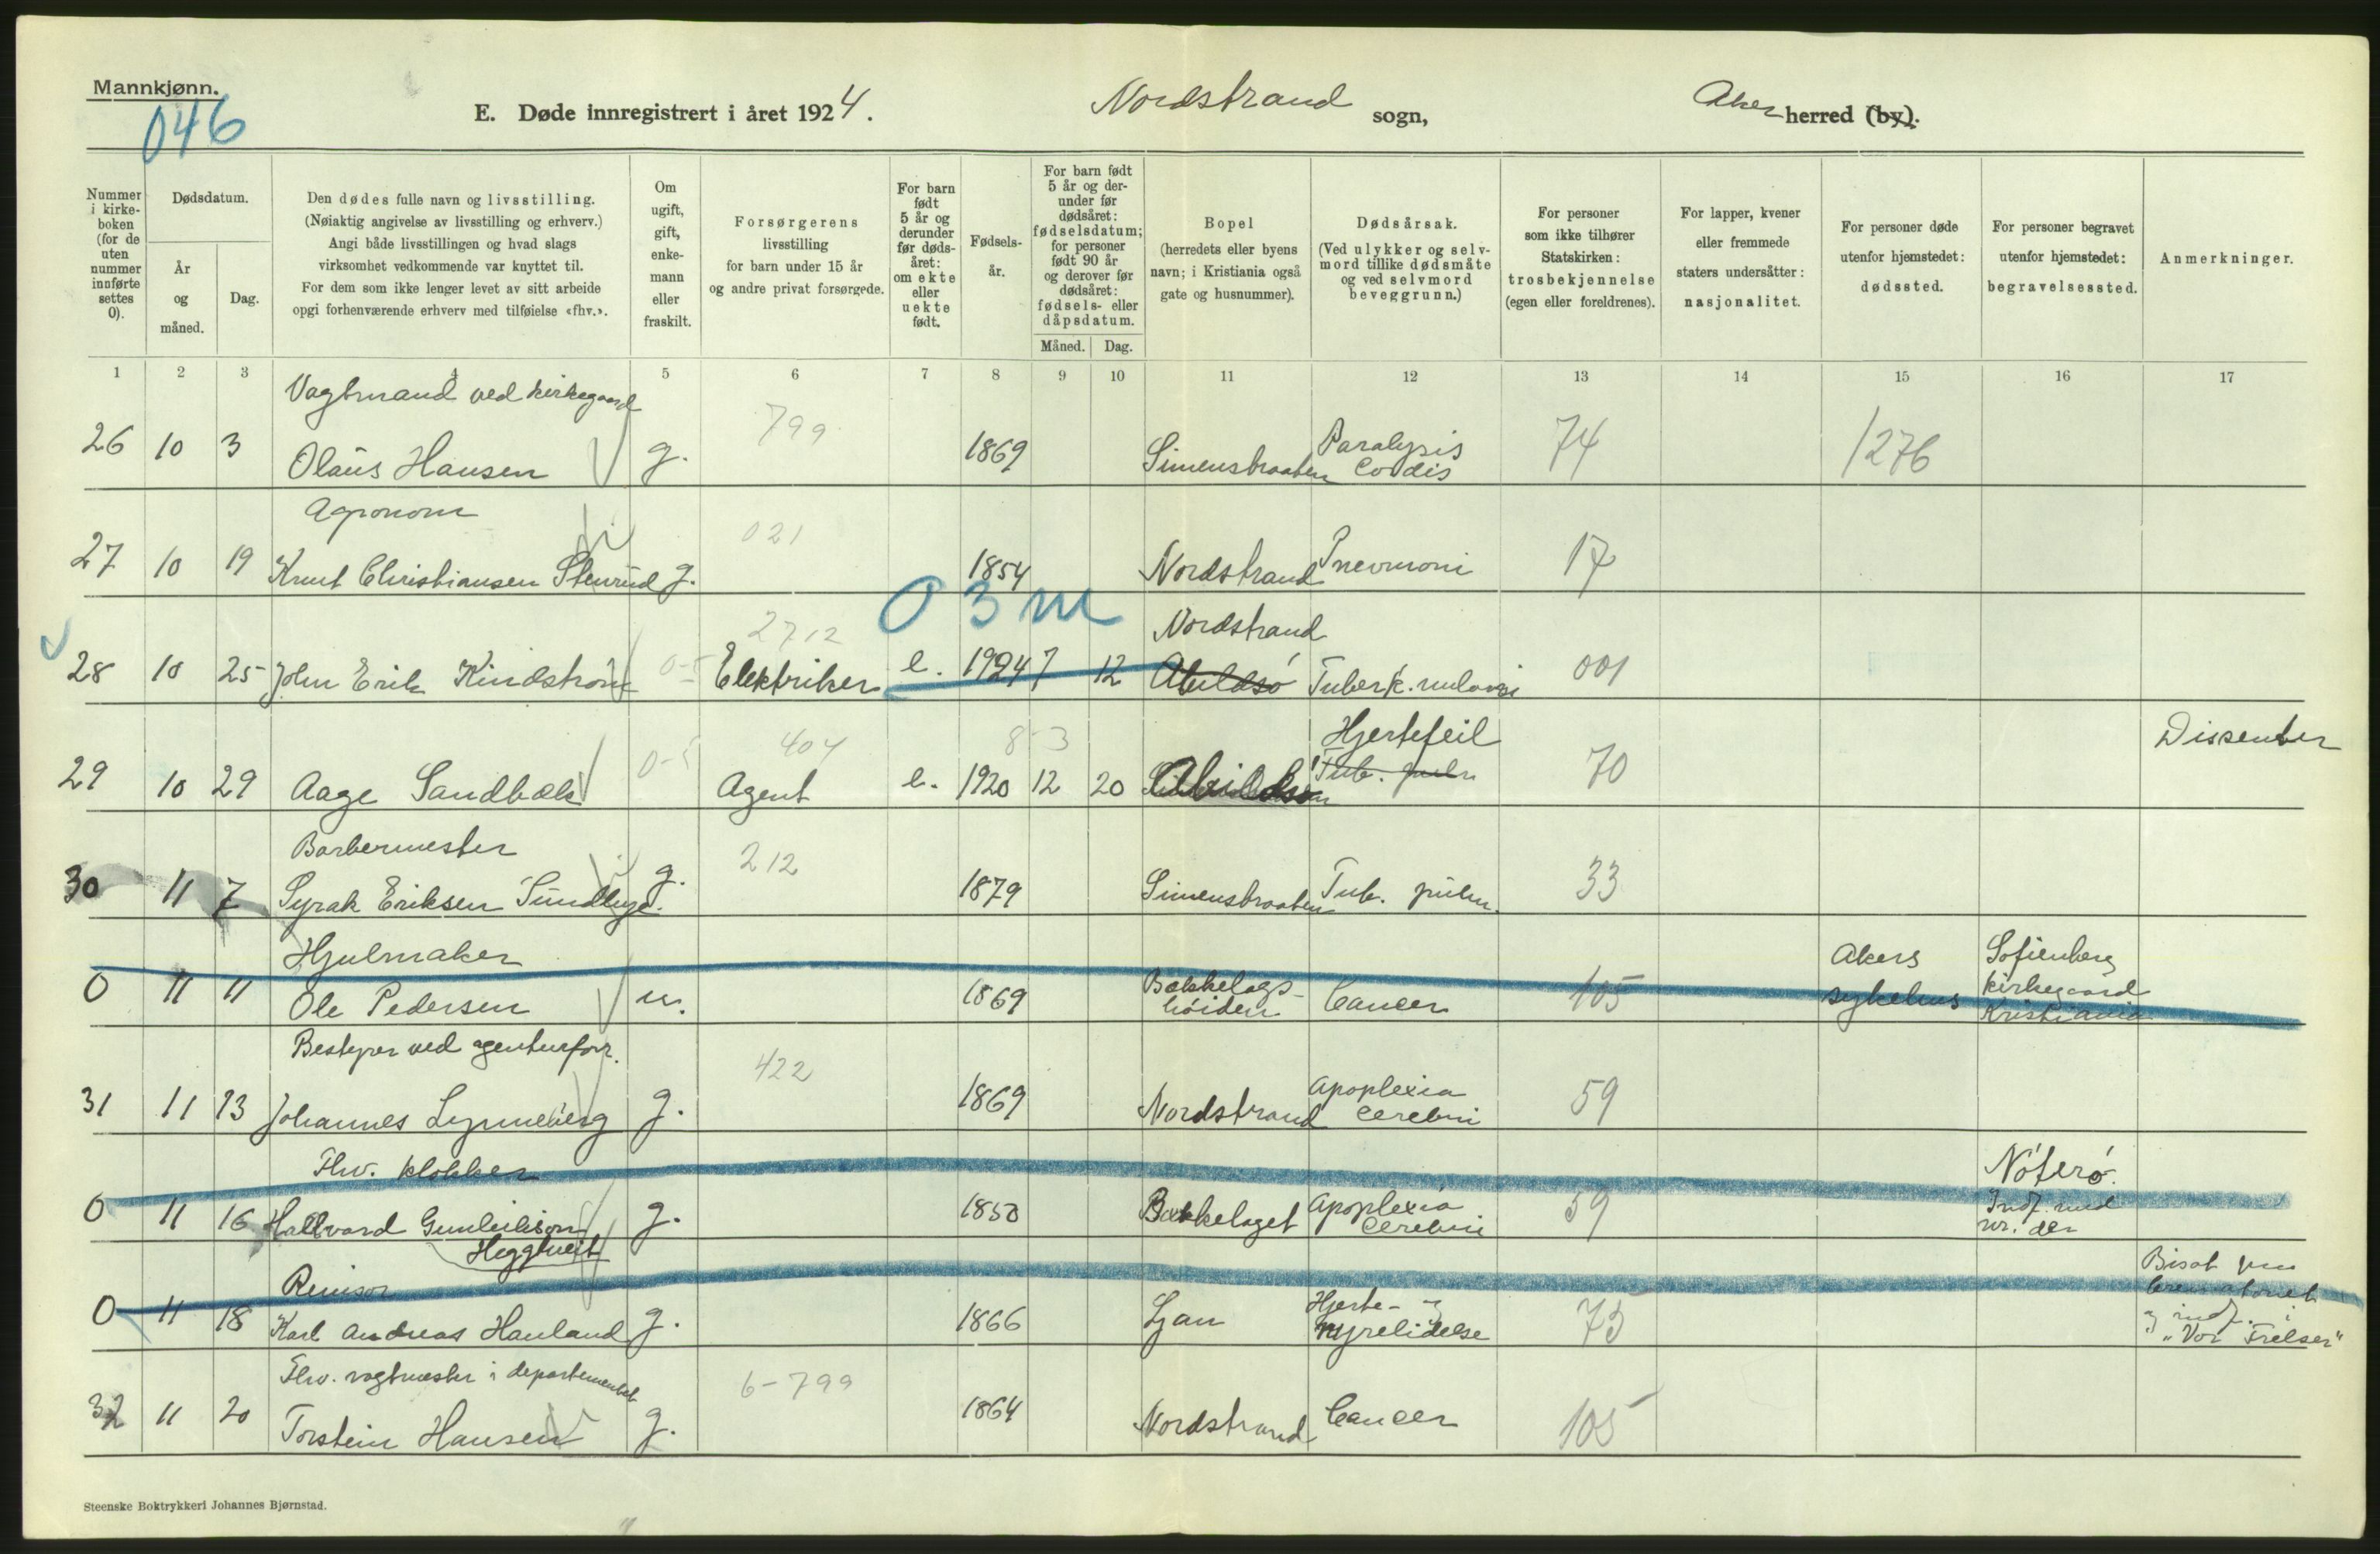 Mannkjønn.
046
E. Døde innregistrert i året 1924.
Nordstrand sogn,
Aker herred (by).
Nummer i kirke-boken (for de uten nummer innførte settes 0).
Dødsdatum.
År og måned.
Dag.
Den dødes fulle navn og livsstilling.
(Nøiaktig angivelse av livsstilling og erhverv.)
Angi både livsstillingen og hvad slags
virksomhet vedkommende var knyttet til.
For dem som ikke lenger levet av sitt arbeide
opgi forhenværende erhverv med tilføielse «fhv.».
Om ugift, gift, enke-mann eller fraskilt.
Forsørgerens
livsstilling
for barn under 15 år
og andre privat forsørgede.
For barn født 5 år og derunder før døds-året: om ekte eller uekte født.
Fødsels-år.
For barn født 5 år og der-under før dødsåret: fødselsdatum; for personer født 90 år og derover før dødsåret: fødsels- eller dåpsdatum.
Måned.
Dag.
Bopel
(herredets eller byens
navn; i Kristiania også
gate og husnummer).
Dødsårsak.
(Ved ulykker og selv-
mord tillike dødsmåte
og ved selvmord
beveggrunn.)
For personer
som ikke tilhører
Statskirken:
trosbekjennelse
(egen eller foreldrenes).
For lapper, kvener
eller fremmede
staters undersåtter:
nasjonalitet.
For personer døde
utenfor hjemstedet:
dødssted.
For personer begravet
utenfor hjemstedet:
begravelsessted.
Anmerkninger.
1 2 3 4 5 6 7 8 9 10 11 12 13 14 15 16 17
Vagtmand ved kirkegaard
799
26 10 3 Olaus Hansen g. 1869 Simenstraaten Paralysis Cordis 74 1276
Agronom
021
27 10 19 Knut Christiansen Stenrud g. 1854 Nordstrand Pnevmoni 17
03m
2712
Nordstrand
28 10 25 John Erik Kindstrøm 0-5 Elektriker e. 1924 7 12 Abildsø Tuberk. 001
404
8-3
Hjertefeil
Dissenter
29 10 29 Aage Sandbæk 0-5 Agent e. 1920 12 20 Abildsø Tub. pulm 70
Barbermester
212
30 11 7 Syrak Eriksen g. 1879 Simenstraaten Tub. pulm. 33
Hjulmaker
0 11 11 Ole Pedersen u. 1869 Bækkelags-høiden Cancer 105 Akers sykehus Sofienberg kirkegaard Kristiania
Bestyrer ved agenturforr.
422
31 11 13 Johannes Lynneberg g. 1869 Nordstrand Apoplexia cerebri 59
Fhv. klokker
0 11 16 Hallvard Gunleikson Heggtveit g. 1850 Bækkelaget Apoplexia cerebri 59 Nøterø. Indf. med nr. der
Revisor
0 11 18 Karl Andreas Hauland g. 1866 Ljan Hjerte- og nyrelidelse 75 Bisat krematoriet og indf. i "Vor Frelser"
Fhv. vagtmester i departementet
6-799
32 11 20 Torstein Hansen g. 1864 Nordstrand Cancer 105
Steenske Boktrykkeri Johannes Bjørnstad.